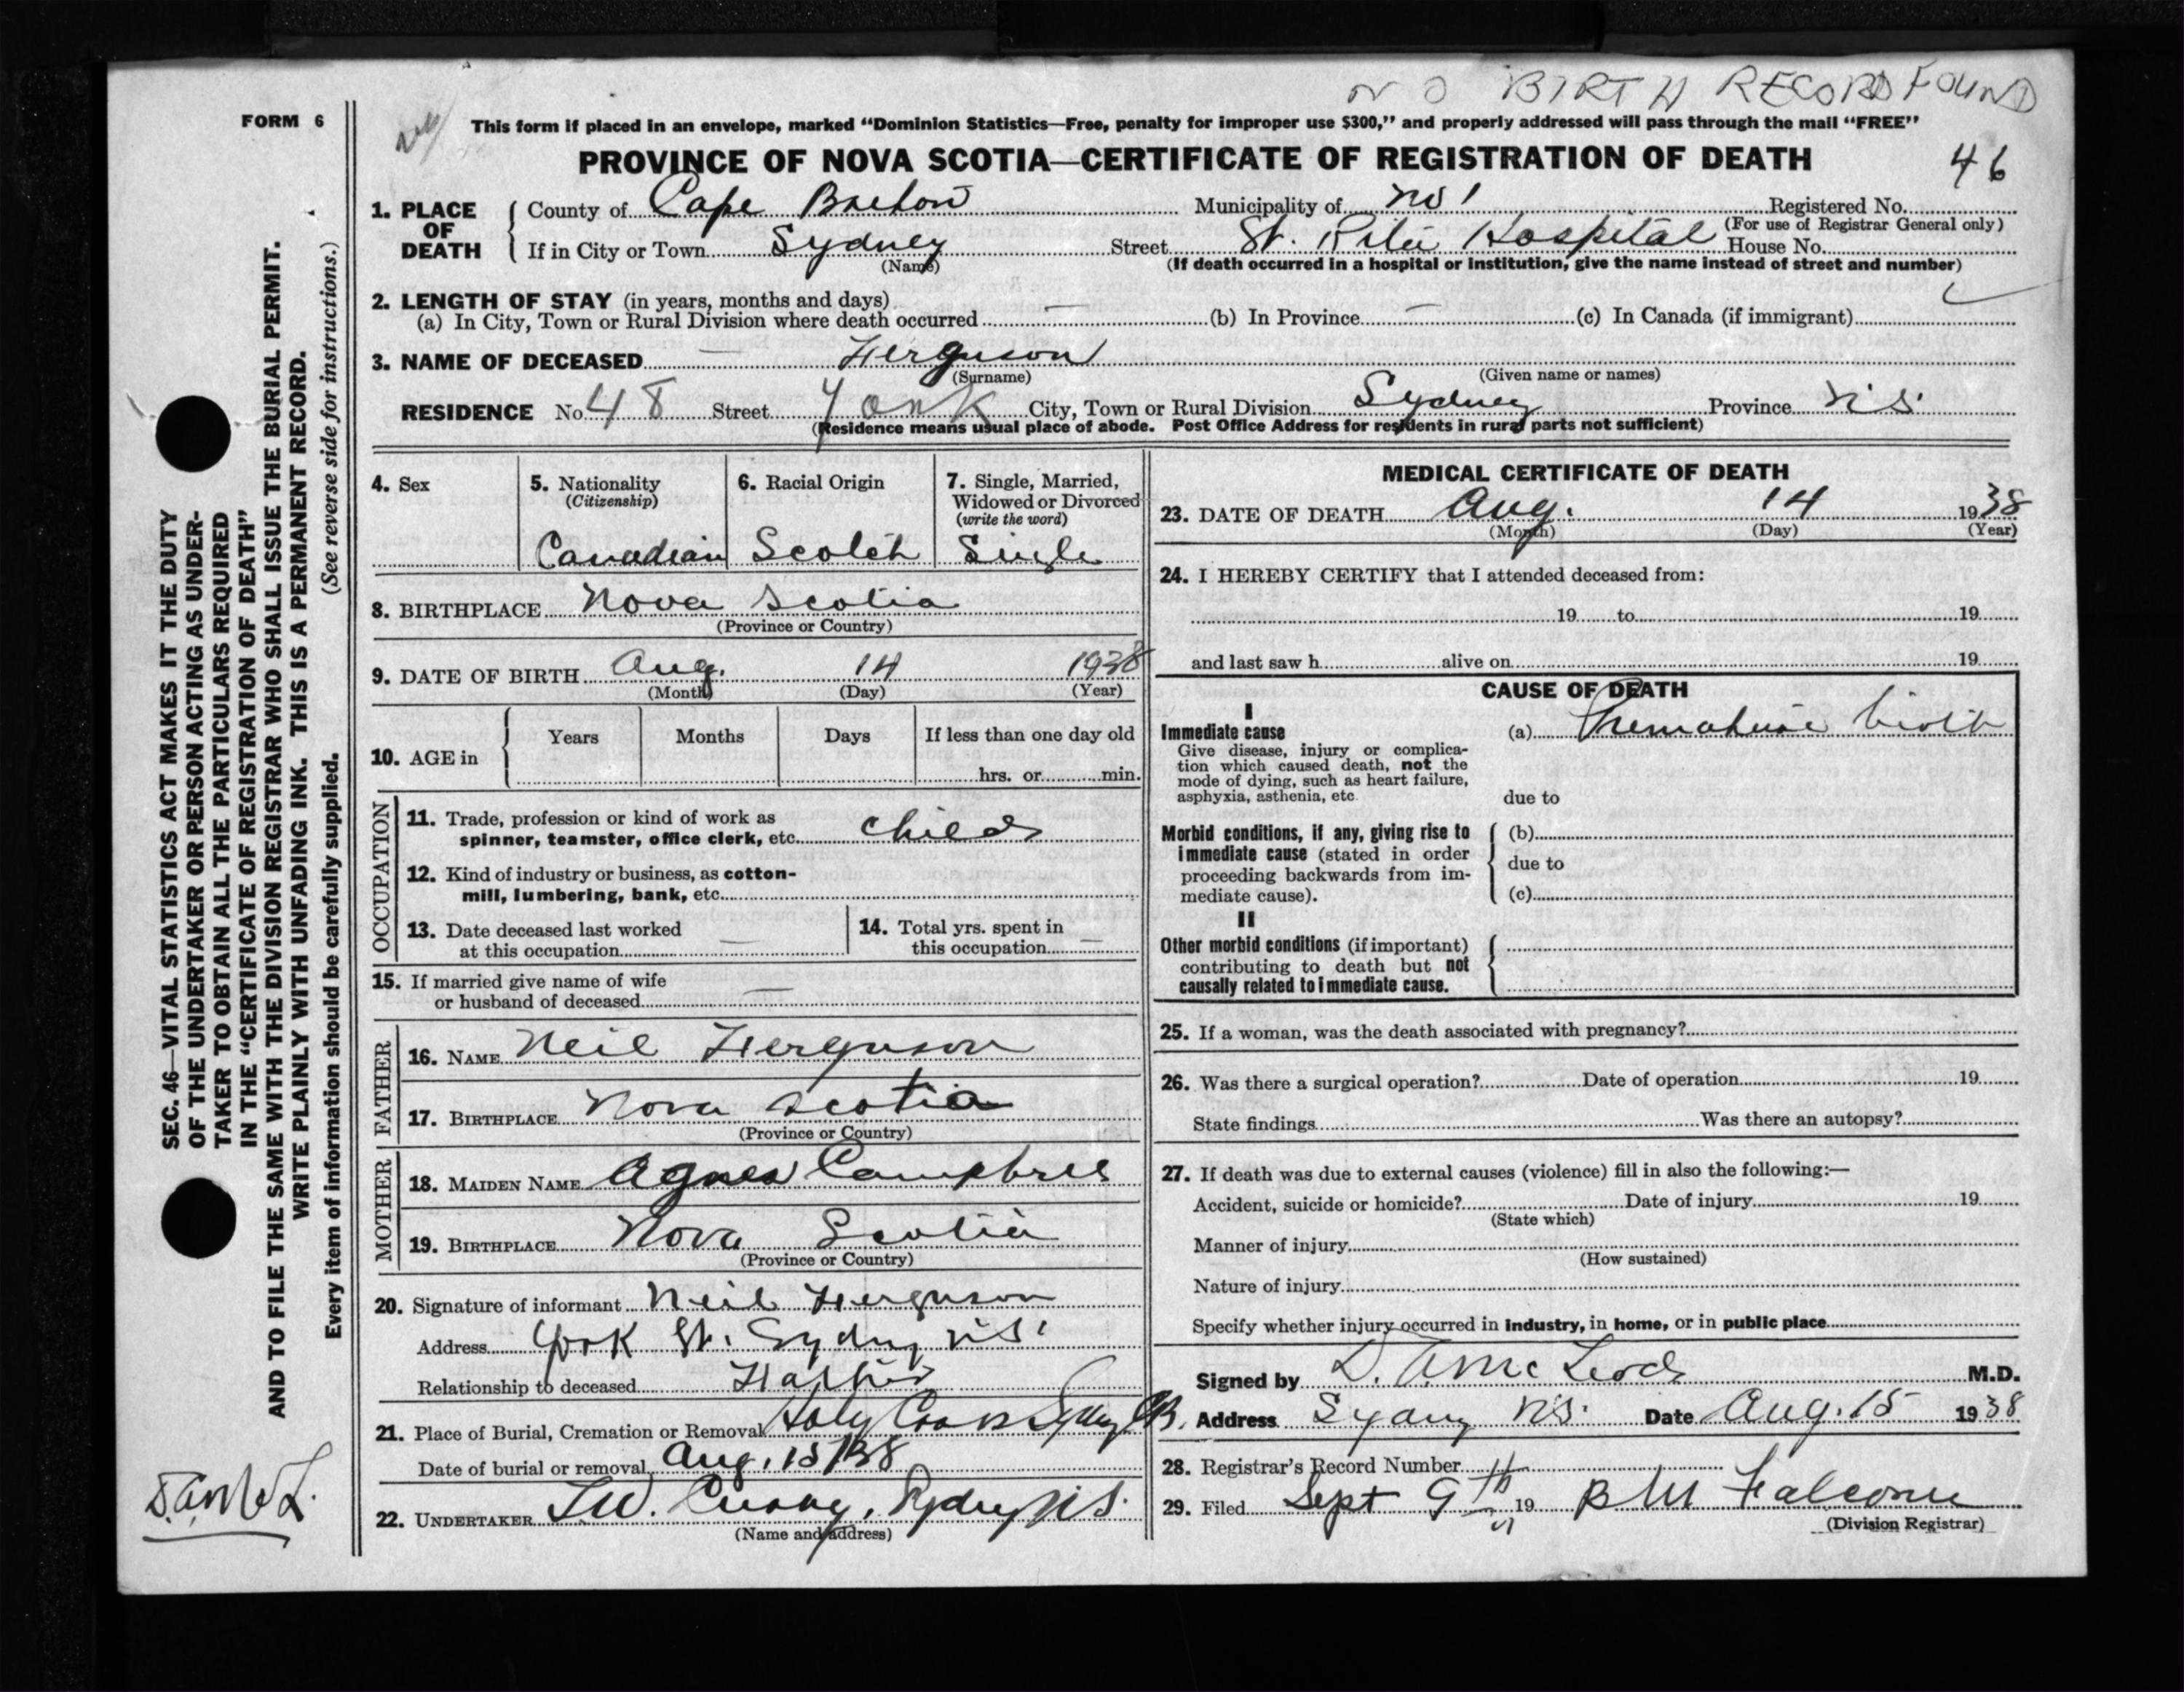 NO BIRTH RECORD FOUND
FORM 6
This form if placed in an envelope, marked “Dominion Statistics—Free, penalty for improper use $300,” and properly addressed will pass through the mail “FREE”
PROVINCE OF NOVA SCOTIA—CERTIFICATE OF REGISTRATION OF DEATH
46
1. PLACE OF DEATH
County of Cape Breton Municipality of Registered No.
(For use of Registrar General only)
If in City or Town Sydney Street St. Rita Hospital House No.
(Name) (If death occurred in a hospital or institution, give the name instead of street and number)
2. LENGTH OF STAY (in years, months and days)
(a) In City, Town or Rural Division where death occurred — (b) In Province — (c) In Canada (if immigrant)
3. NAME OF DECEASED — Ferguson
(Surname) (Given name or names)
RESIDENCE No. 48 Street York City, Town or Rural Division Sydney Province N.S.
(Residence means usual place of abode. Post Office Address for residents in rural parts not sufficient)
4. Sex
5. Nationality
(Citizenship)
Canadian
6. Racial Origin
Scotch
7. Single, Married,
Widowed or Divorced
(write the word)
Single
8. BIRTHPLACE Nova Scotia
(Province or Country)
9. DATE OF BIRTH Aug. 14 1938
(Month) (Day) (Year)
10. AGE in
Years Months Days If less than one day old
hrs. or min.
OCCUPATION
11. Trade, profession or kind of work as
spinner, teamster, office clerk, etc. child
12. Kind of industry or business, as cotton-
mill, lumbering, bank, etc.
13. Date deceased last worked
at this occupation —
14. Total yrs. spent in
this occupation —
15. If married give name of wife
or husband of deceased —
FATHER
16. NAME Neil Ferguson
17. BIRTHPLACE Nova Scotia
(Province or Country)
MOTHER
18. MAIDEN NAME Agnes Campbell
19. BIRTHPLACE Nova Scotia
(Province or Country)
20. Signature of informant Neil Ferguson
Address York St. Sydney N.S.
Relationship to deceased Father
21. Place of Burial, Cremation or Removal Holy Cross Sydney C.B.
Date of burial or removal Aug. 15/38
22. UNDERTAKER Curry, Sydney N.S.
(Name and address)
MEDICAL CERTIFICATE OF DEATH
23. DATE OF DEATH Aug. 14 1938
(Month) (Day) (Year)
24. I HEREBY CERTIFY that I attended deceased from:
19 to 19
and last saw h alive on 19
CAUSE OF DEATH
I
Immediate cause
Give disease, injury or complica-
tion which caused death, not the
mode of dying, such as heart failure,
asphyxia, asthenia, etc.
(a) Premature birth
due to
Morbid conditions, if any, giving rise to
immediate cause (stated in order
proceeding backwards from im-
mediate cause).
(b)
due to
(c)
II
Other morbid conditions (if important)
contributing to death but not
causally related to immediate cause.
25. If a woman, was the death associated with pregnancy?
26. Was there a surgical operation? Date of operation 19
State findings Was there an autopsy?
27. If death was due to external causes (violence) fill in also the following:—
Accident, suicide or homicide? Date of injury 19
(State which)
Manner of injury
(How sustained)
Nature of injury
Specify whether injury occurred in industry, in home, or in public place
Signed by D. A. McLeod M.D.
Address Sydney N.S. Date Aug. 15 1938
28. Registrar's Record Number
29. Filed Sept 9th 19 B M Falconer
(Division Registrar)
SEC. 46—VITAL STATISTICS ACT MAKES IT THE DUTY
OF THE UNDERTAKER OR PERSON ACTING AS UNDER-
TAKER TO OBTAIN ALL THE PARTICULARS REQUIRED
IN THE “CERTIFICATE OF REGISTRATION OF DEATH”
AND TO FILE THE SAME WITH THE DIVISION REGISTRAR WHO SHALL ISSUE THE BURIAL PERMIT.
WRITE PLAINLY WITH UNFADING INK. THIS IS A PERMANENT RECORD.
Every item of information should be carefully supplied. (See reverse side for instructions.)